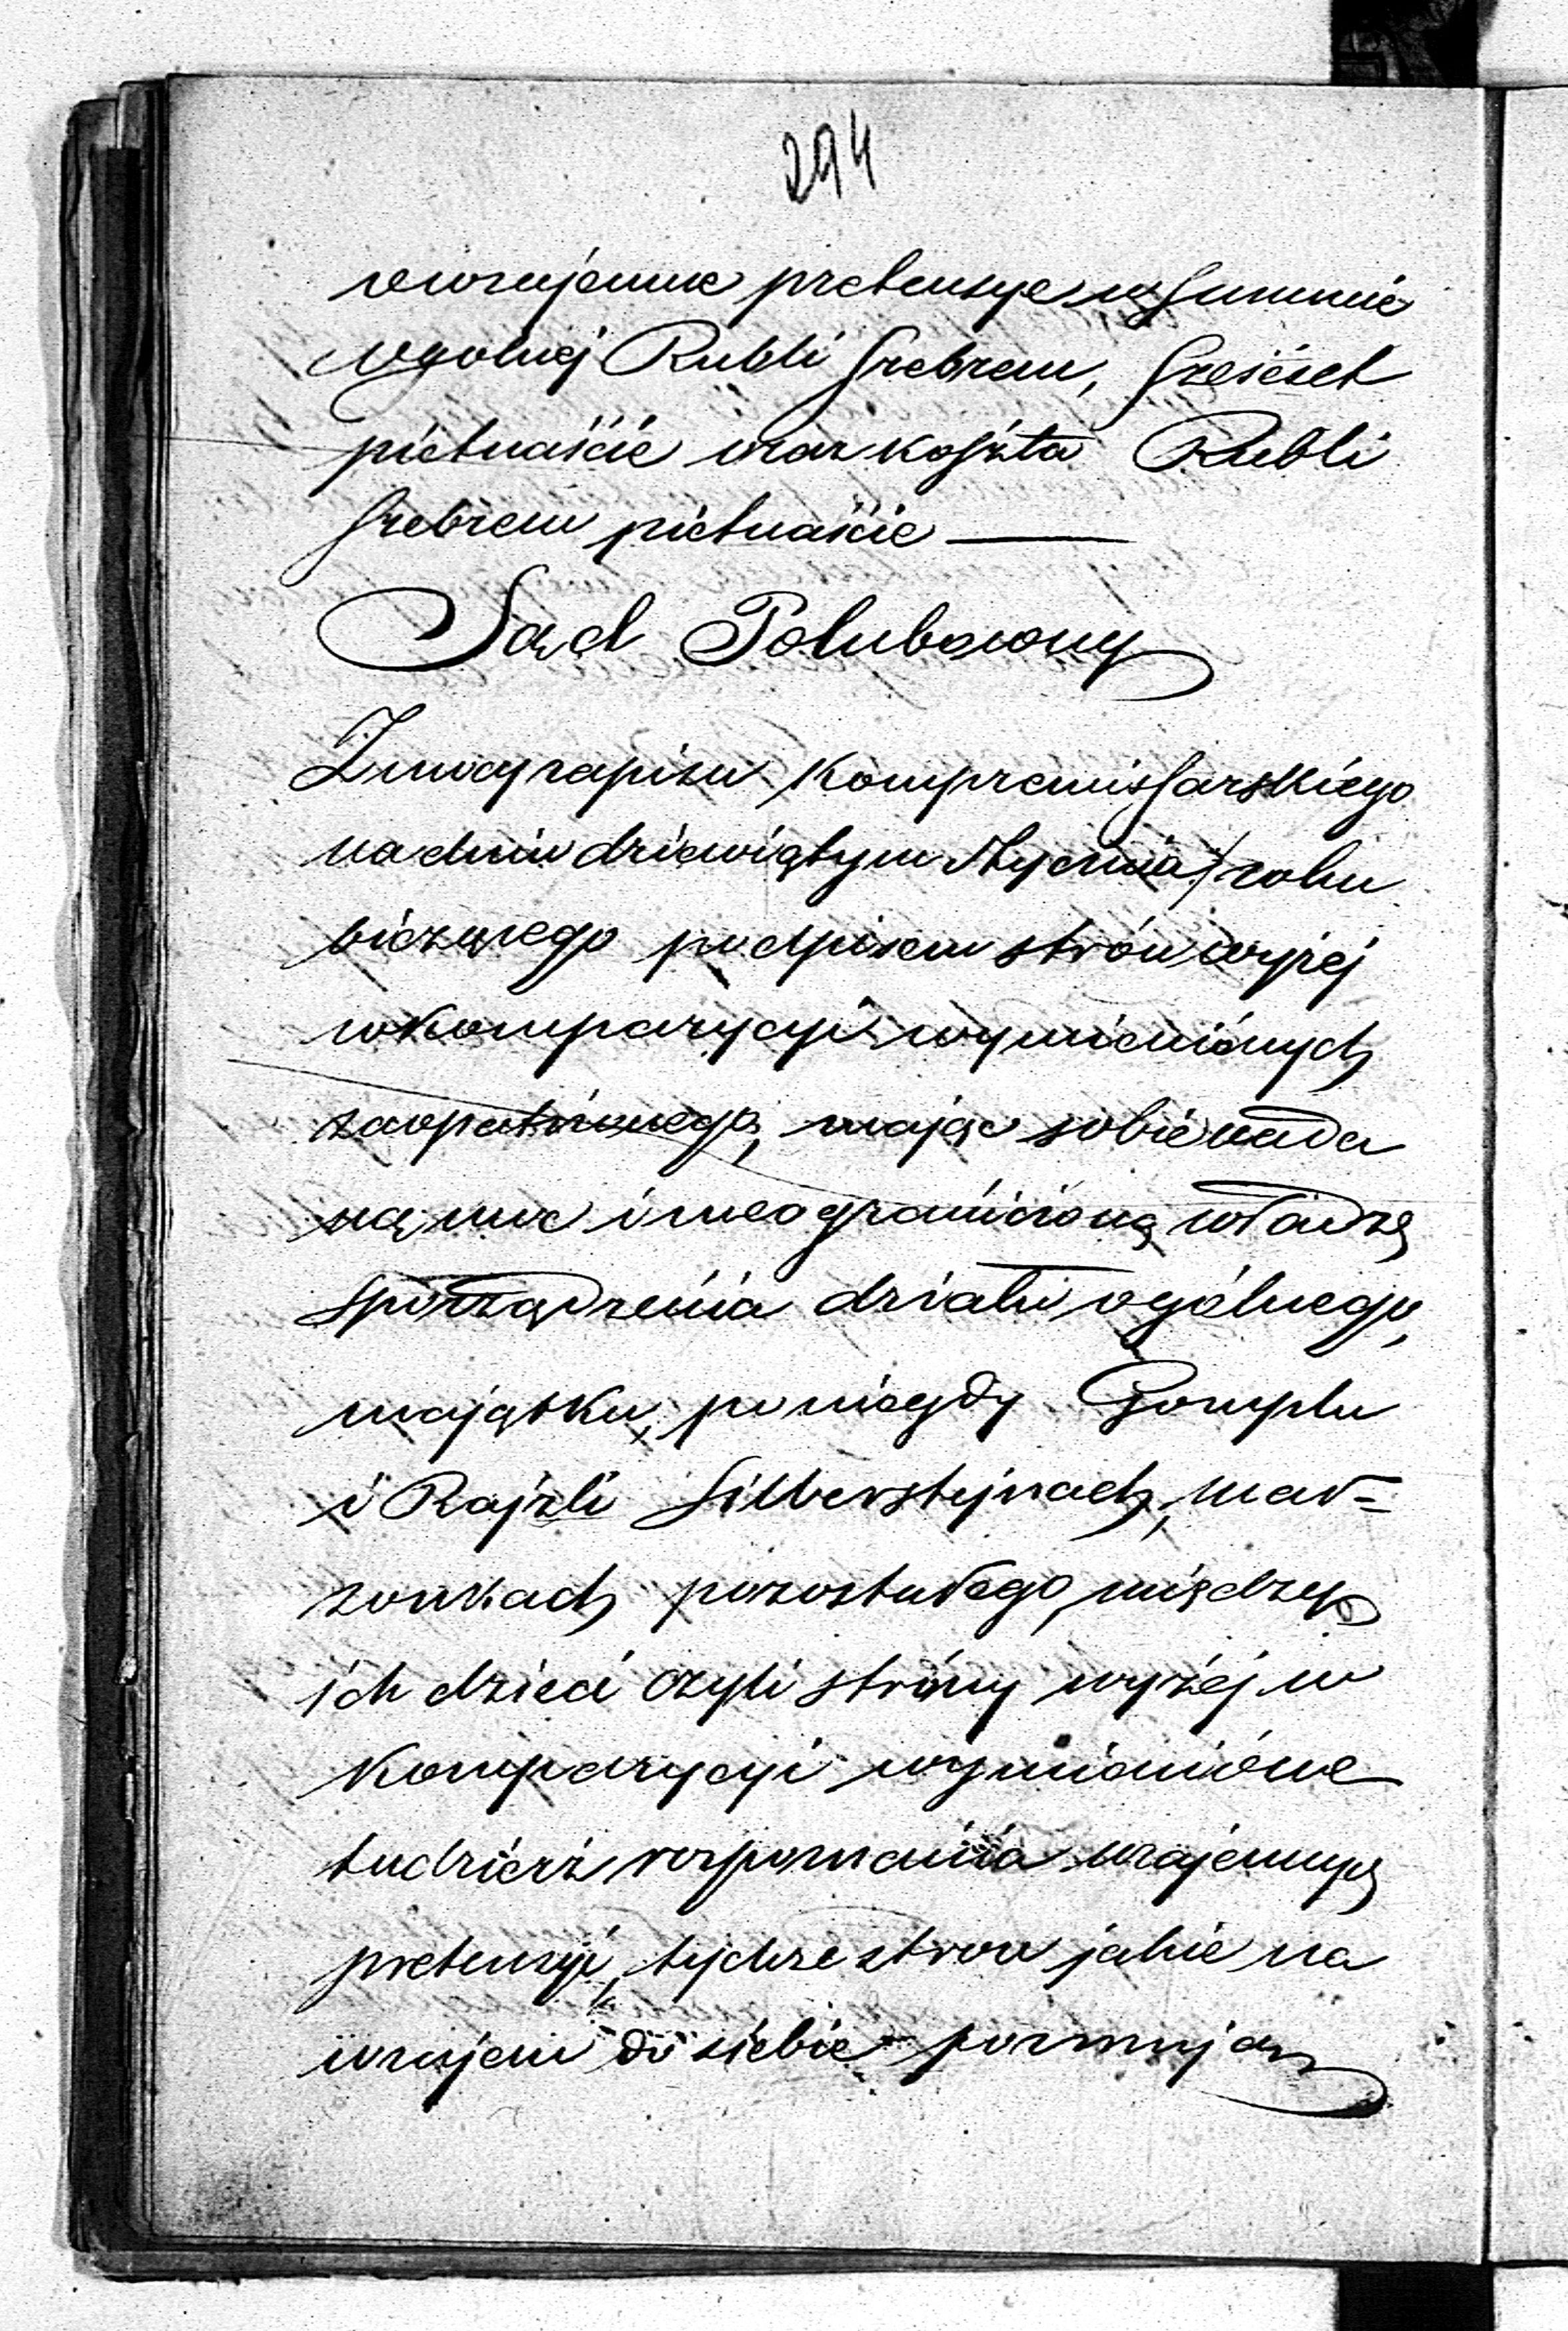 294
wzajemne pretensye w Summie
ogolnej Rubli Srebrem, Sześćset
pietnaście oraz koszta Rubli
Srebrem pietnaście —
Sąd Polubowny
Z mocy zapisu Kompromissarskiego
na dniu dziewiątym Stycznia roku
bieżącego podpisem strón wyżej
w Komparycyi wymieniónych
zaopatrzonego, mając sobie nada
ną moc i nieograniczoną władzę
sporządzenia działu ogólnego,
majątku, po niegdy Gomplu
i Rajzli Silberstejnach, mał=
zonkach pozostałego, między
ich dzieci czyli stróny wyżej w
Komparycyi wymienióne
tudzierz rozpoznania wzajemnych
pretensyi, tychze stron jakie na
wzajem do siebie poznają